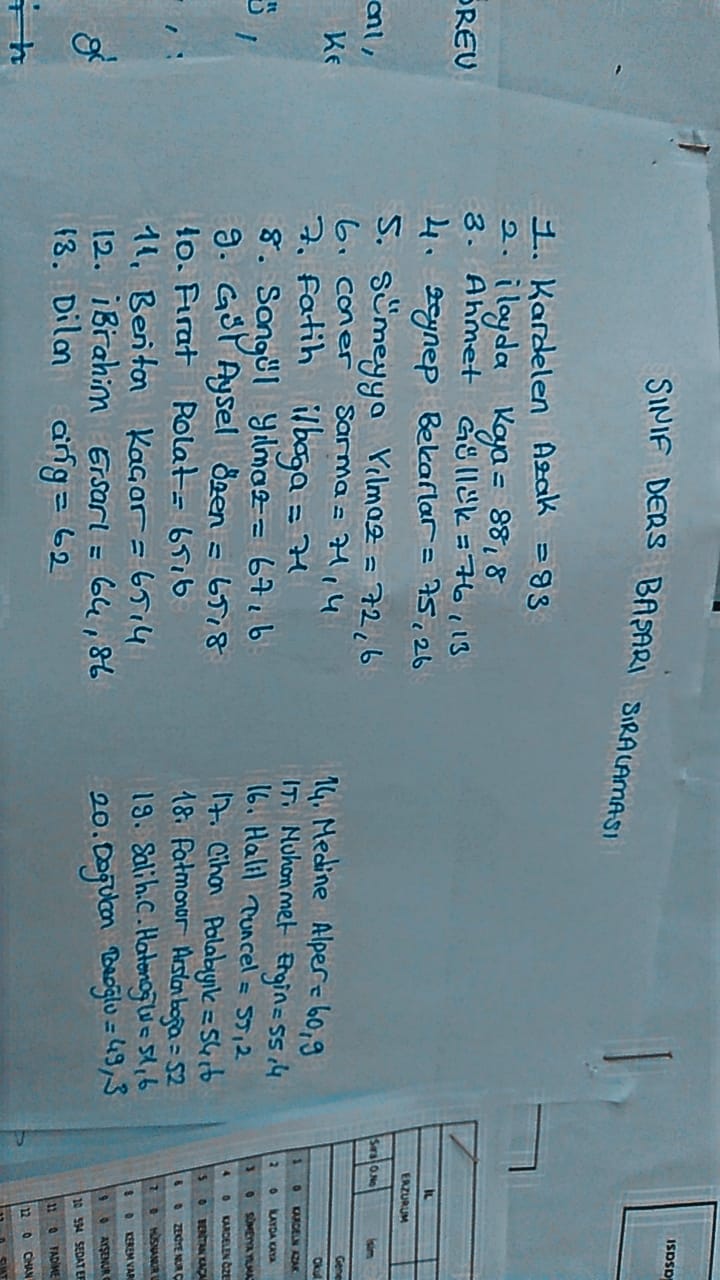 SINIF DERS BAŞARI SIRALAMASI
1. Kardelen Azak = 93
2. ilayda Kaya = 88,8
3. Ahmet Güllük = 76,13
4. Zeynep Bekarlar = 75,26
5. Sümeyya Yılmaz = 72,6
6. Caner Sarma = 71,4
7. Fatih ilboga = 71
8. Songül Yılmaz = 67,6
9. Gül Aysel Özen = 65,8
10. Fırat Polat = 65,6
11. Beritan Kaçar = 65,4
12. iBrahim Ersarı = 64,86
13. Dilan = 62
14. Medine Alper = 60,9
15. Muhammet Ergin = 55,4
16. Halil Tuncel = 55,2
17. Cihan Palabıyık = 54,6
18. Fatmanur Arslanboğa = 52
19. Salih.C. Hatunoğlu = 51,6
20. Doğukan = 49,3
İL
ERZURUM
Sıra Ö.No İsim
Okul
1 0 KARDELEN AZAK
2 0 İLAYDA KAYA
3 0 SÜMEYYA YILMAZ
4 0 KARDELEN ÖZE
5 0 BERİTAN KAÇA
6 0 ZEKİYE NUR
7 0
8 0 KEREM
9 0 AYŞENUR
10 594 SEDAT
11 0
12 0 CİHAN